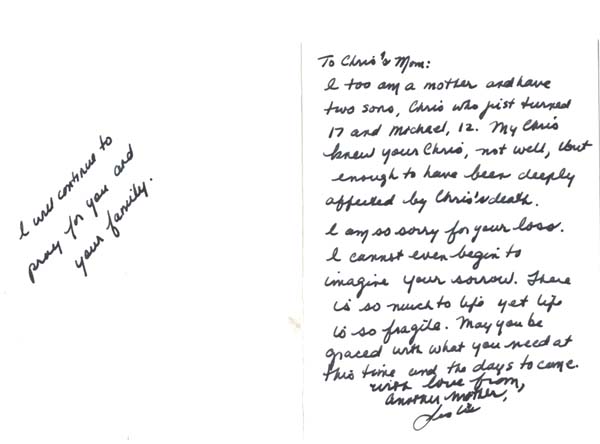 I will continue to
pray for you and
your family.
To Chris's Mom:
I too am a mother and have
two sons, Chris who just turned
17 and Michael, 12. My Chris
knew your Chris, not well, but
enough to have been deeply
affected by Chris's death.
I am so sorry for your loss.
I cannot even begin to
imagine your sorrow. There
is so much to life yet life
is so fragile. May you be
graced with what you need at
this time and the days to come.
With love from,
Another mother,
Leslie